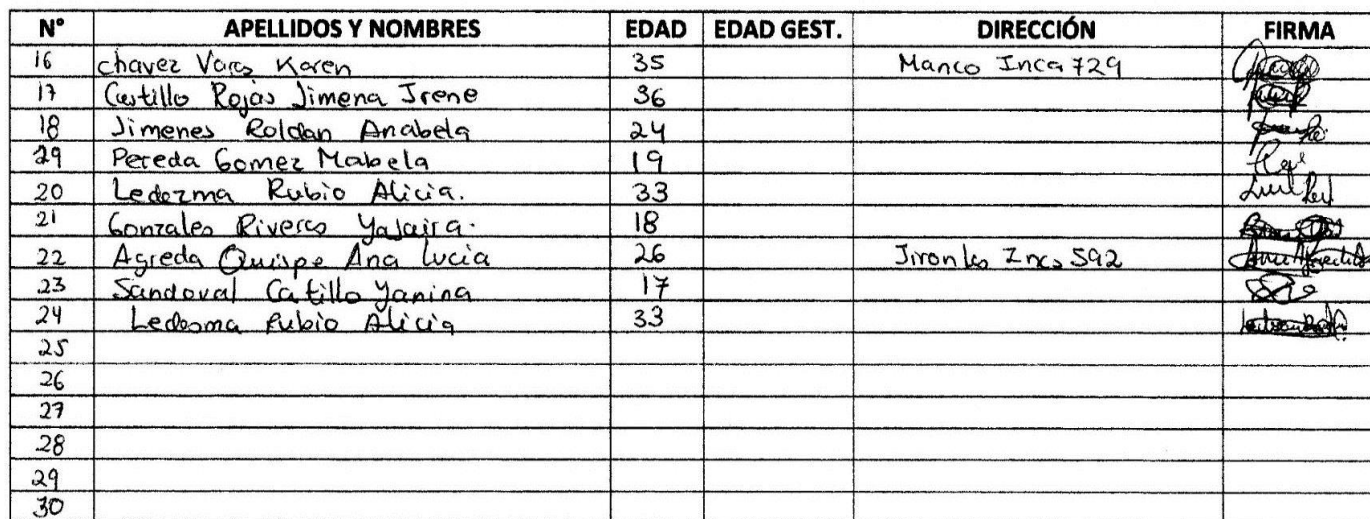 N° APELLIDOS Y NOMBRES EDAD EDAD GEST. DIRECCIÓN FIRMA
16 chavez Karen 35 Manco Inca 729
17 Castillo Rojas Jimena Irene 36
18 Jimenes Roldan Anabela 24
29 Pereda Gomez Mabela 19
20 Ledezma Rubio Alicia. 33
21 Gonzales Riveros Yajaira. 18
22 Agreda Quispe Ana lucia 26 592
23 Sandoval Catillo Yanina 17
24 Ledesma Rubio Alicia 33
25
26
27
28
29
30